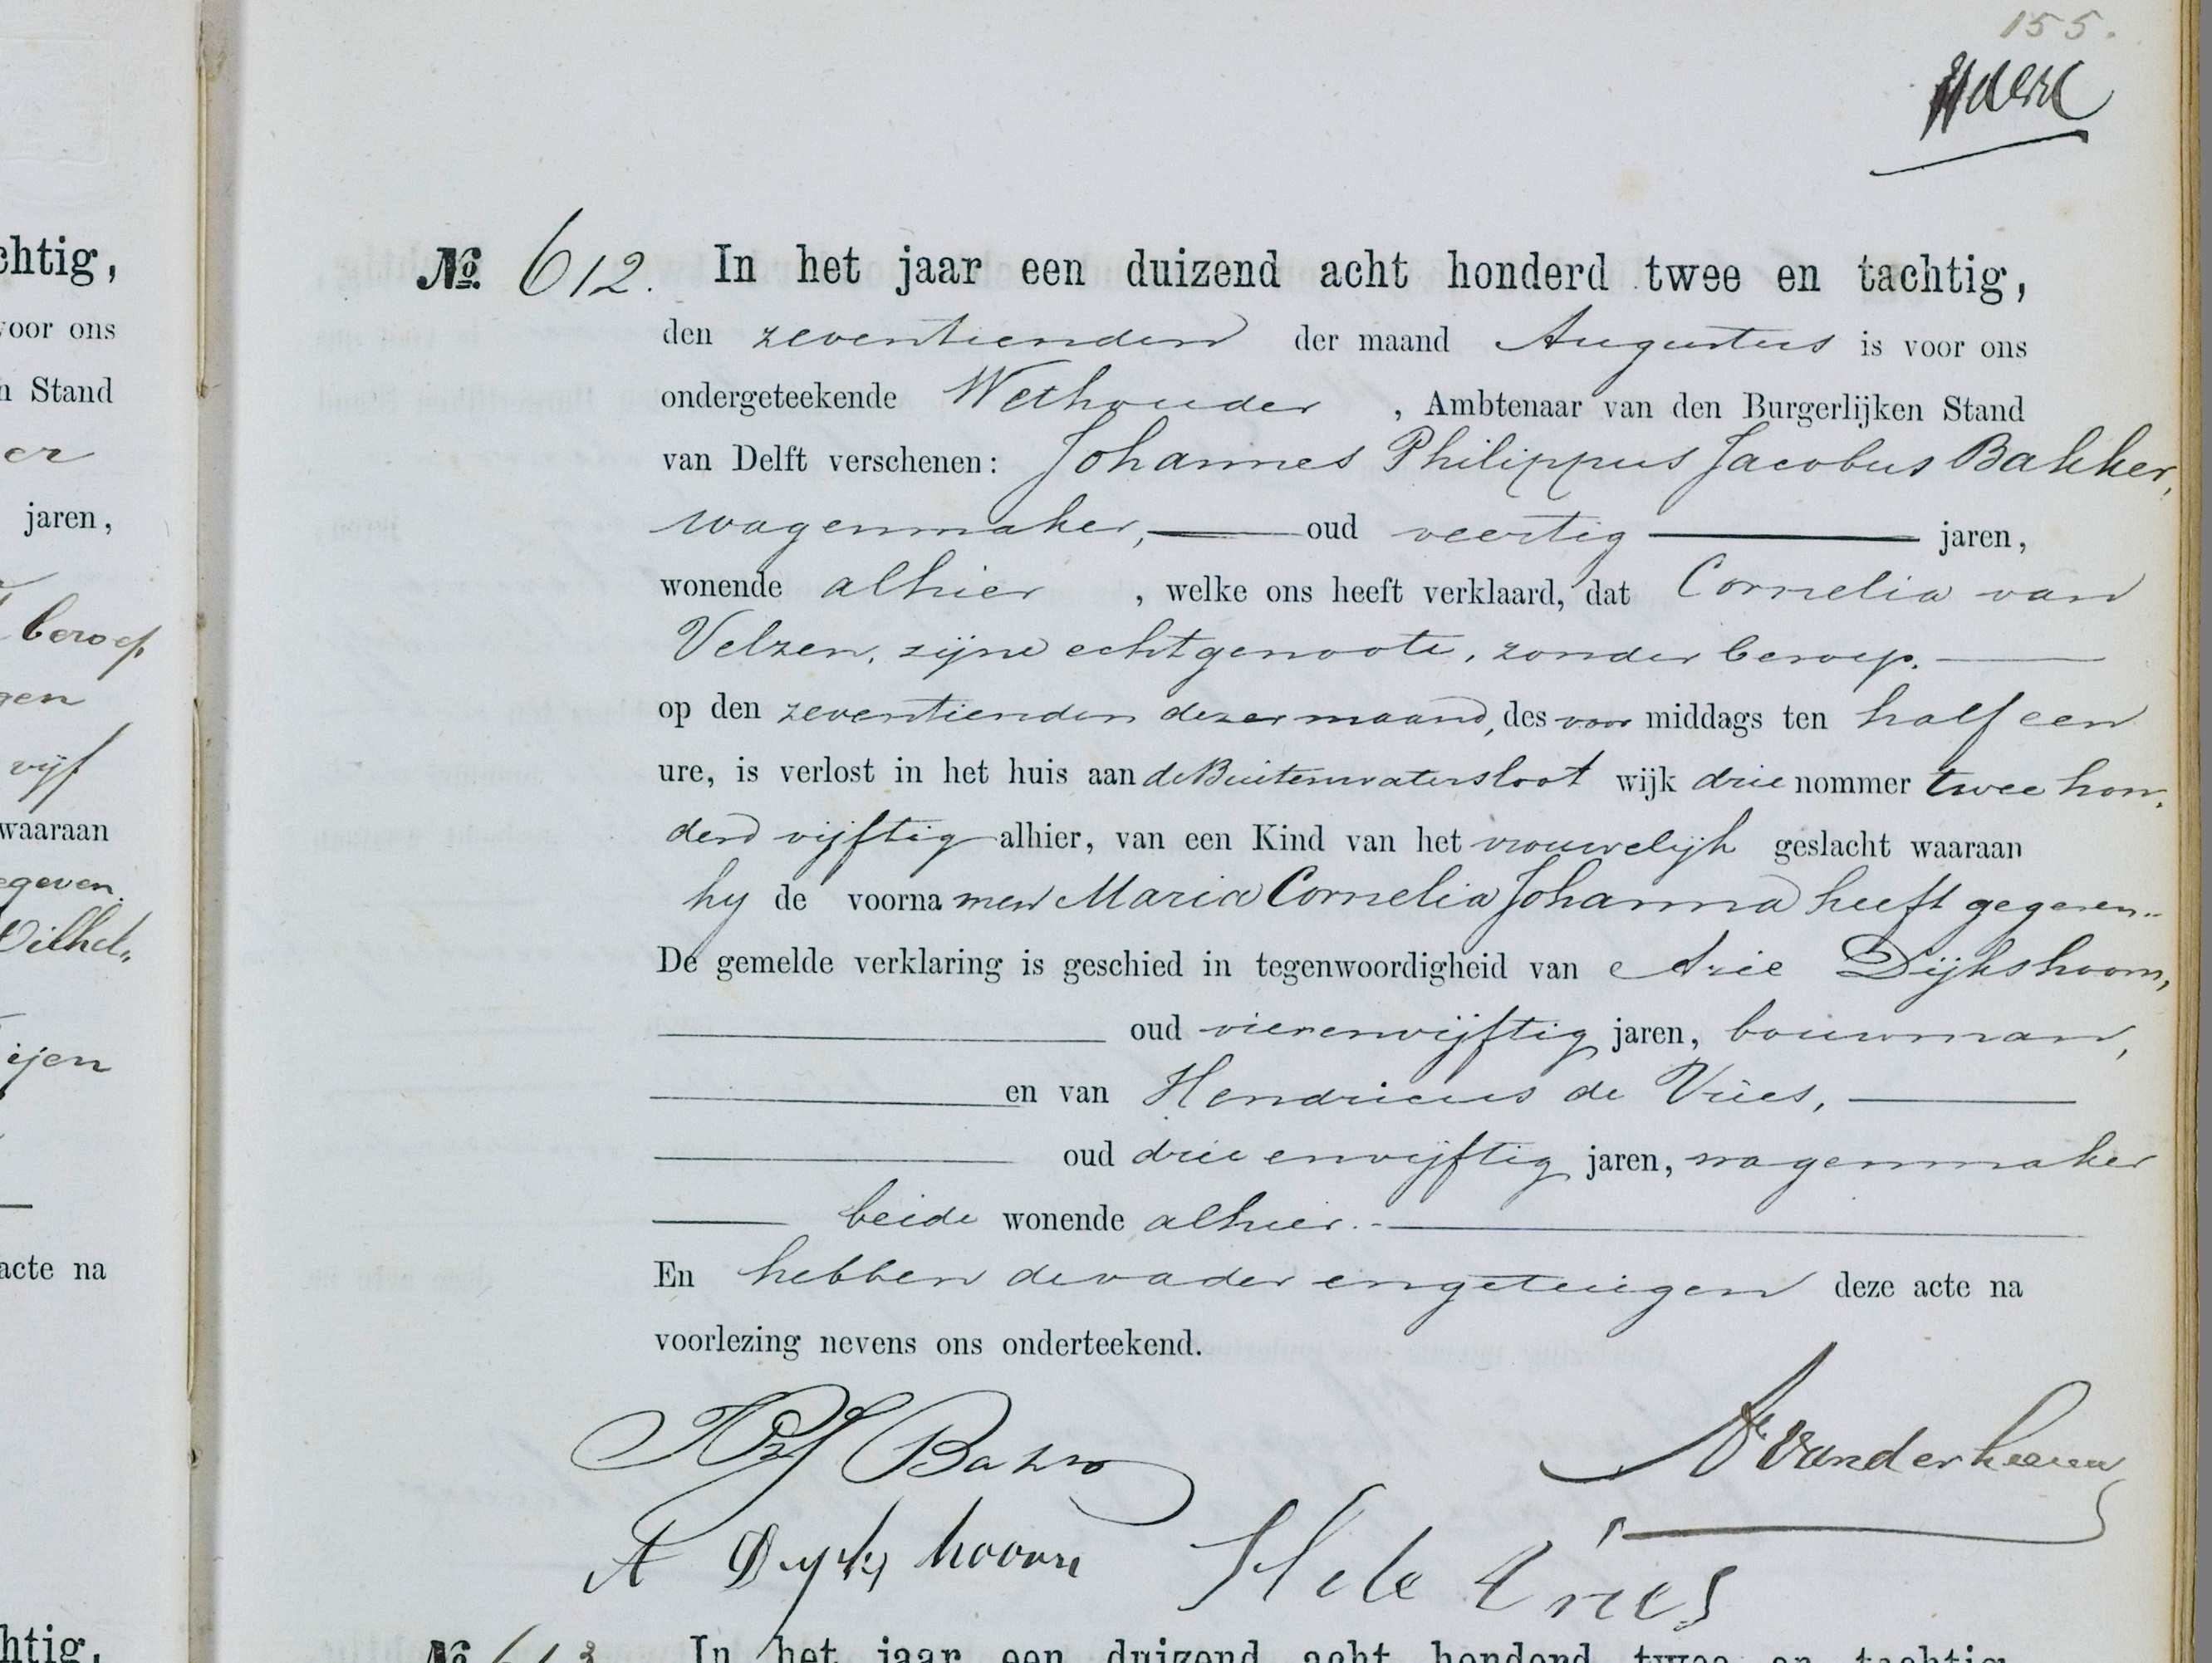 155.
chtig,
voor ons
n Stand
er
jaren,
beroep
gen
vijf
waaraan
egeven.
Wilhel„
eijen
acte na
htig,
№ 612. In het jaar een duizend acht honderd twee en tachtig,
den zeventienden der maand Augustus is voor ons
ondergeteekende Wethouder , Ambtenaar van den Burgerlijken Stand
van Delft verschenen: Johannes Philippus Jacobus Bakker,
wagenmaker, oud veertig jaren,
wonende alhier , welke ons heeft verklaard, dat Cornelia van
Velzen, zijne echtgenoote, zonder beroep.
op den zeventienden dezer maand, des voor middags ten half een
ure, is verlost in het huis aan de Buitenwatersloot wijk drie nommer twee hon-
derd vijftig alhier, van een Kind van het vrouwelijk geslacht waaraan
hy de voorna men Maria Cornelia Johanna heeft gegeven..
De gemelde verklaring is geschied in tegenwoordigheid van Arie Dijkshoorn,
oud vierenvijftig jaren, bouwman,
en van Hendricus de Vries,
oud drie envijftig jaren, wagenmaker
beide wonende alhier.
En hebben de vader en getuigen deze acte na
voorlezing nevens ons onderteekend.
Bakker
A Dyks hoorn
H de Vries
№ 613 In het jaar een duizend acht honderd twee en tachtig